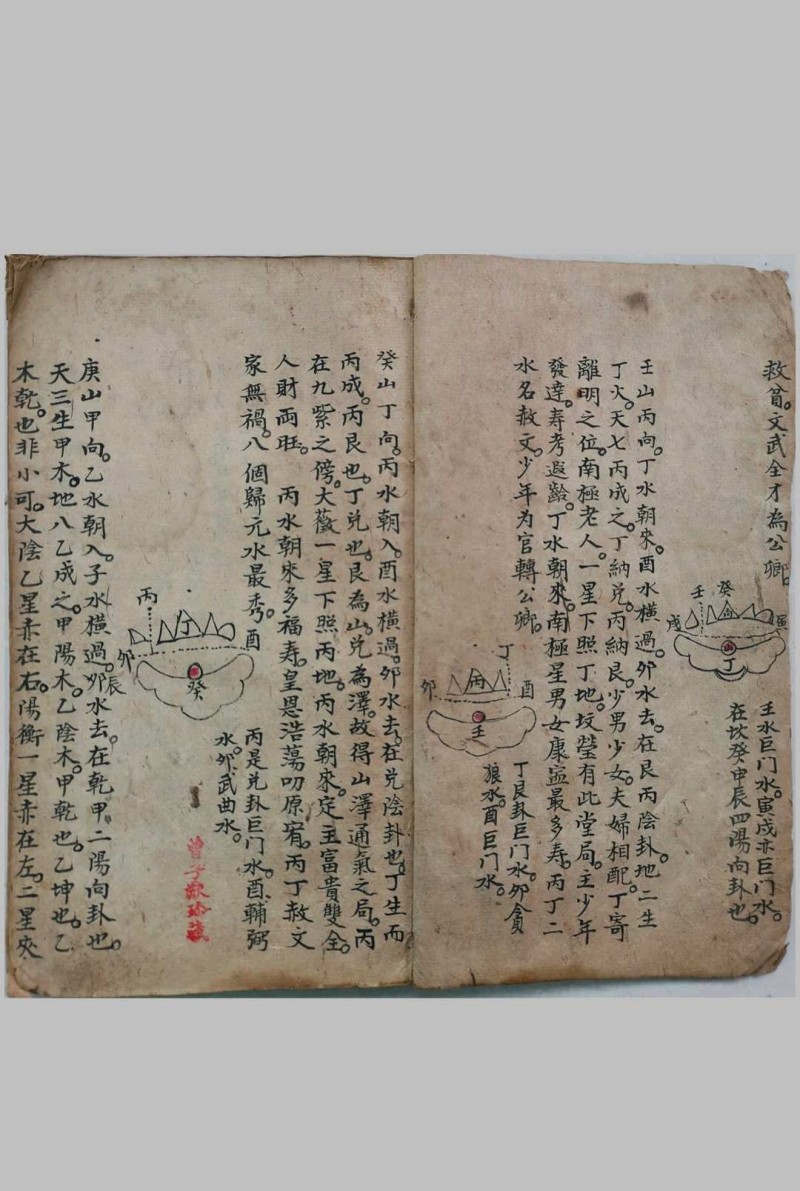 救貧。文武全才為公卿。
癸
壬
戌
寅
丙
丁
壬水巨门水。寅戌亦巨门水。
在坎癸申辰四陽向卦也。
壬山丙向。丁水朝來。酉水橫過。卯水去。在艮丙陰卦。地二生
丁火。天七丙成之。丁納兌。丙納艮。少男少女。夫婦相配。丁寄
離明之位。南極老人。一星下照丁地。坟塋有此堂局。主少年
發達。寿考遐齡。丁水朝來。南極星男女康寍最多寿。丙丁二
水名赦文。少年为官轉公卿。
丁
酉
丙
卯
壬
丁艮卦巨门水。卯貪
狼水。酉巨门水。
癸山丁向。丙水朝入。酉水橫過。卯水去。在兌陰卦也。丁生而
丙成。丙艮也。丁兌也。艮為山。兌為澤。故得山澤通氣之局。丙
在九紫之傍。大薇一星下照丙地。丙水朝來。定主富貴雙全。
人財両旺。丙水朝來多福寿。皇恩浩蕩叨原宥。丙丁赦文
家無禍。八個歸元水最秀。
酉
丁
丙
卯
辰
癸
丙是兌卦巨门水。酉輔弼
水。卯武曲水。
庚山甲向。乙水朝入。子水橫過。卯水去。在乾甲二陽向卦也。
天三生甲木。地八乙成之。甲陽木。乙陰木。甲乾也。乙坤也。乙
木乾。也非小可。大陰乙星赤在右。陽衡一星赤在左。二星夾